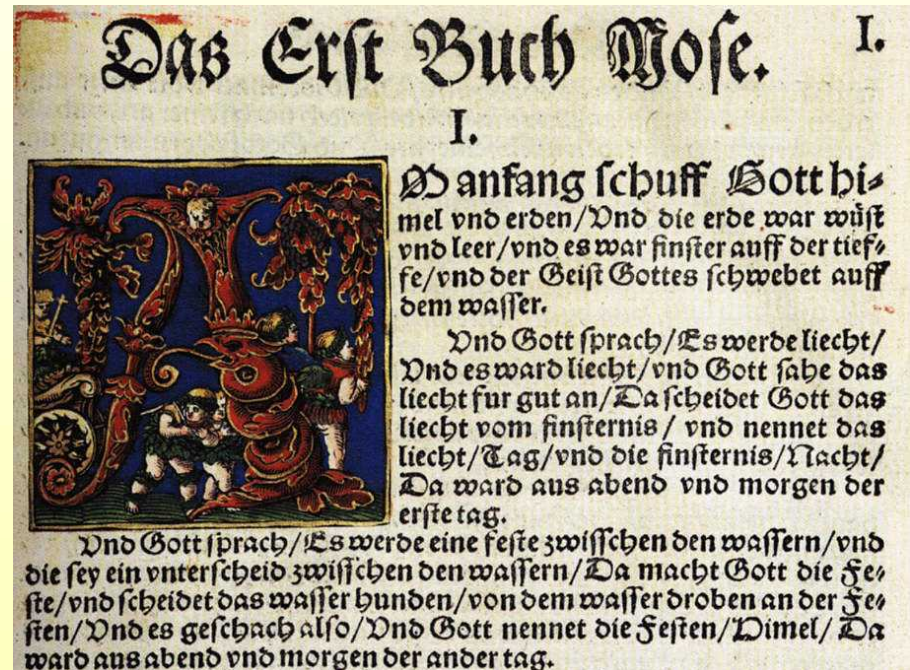 Das Erſt Buch Moſe. I.
I.
AM anfang ſchuff Gott hi⸗
mel vnd erden/Vnd die erde war wüſt
vnd leer/vnd es war finſter auff der tieff⸗
fe/vnd der Geiſt Gottes ſchwebet auff
dem waſſer.
Vnd Gott ſprach/Es werde liecht/
Vnd es ward liecht/vnd Gott ſahe das
liecht fur gut an/Da ſcheidet Gott das
liecht vom finſternis/ vnd nennet das
liecht/Tag/vnd die finſternis/Nacht/
Da ward aus abend vnd morgen der
erſte tag.
Vnd Gott ſprach/Es werde eine feſte zwiſſchen den waſſern/vnd
die ſey ein vnterſcheid zwiſſchen den waſſern/Da macht Gott die Fe⸗
ſte/vnd ſcheidet das waſſer hunden/von dem waſſer droben an der Fe⸗
ſten/Vnd es geſchach alſo/Vnd Gott nennet die Feſten/Himel/ Da
ward aus abend vnd morgen der ander tag.